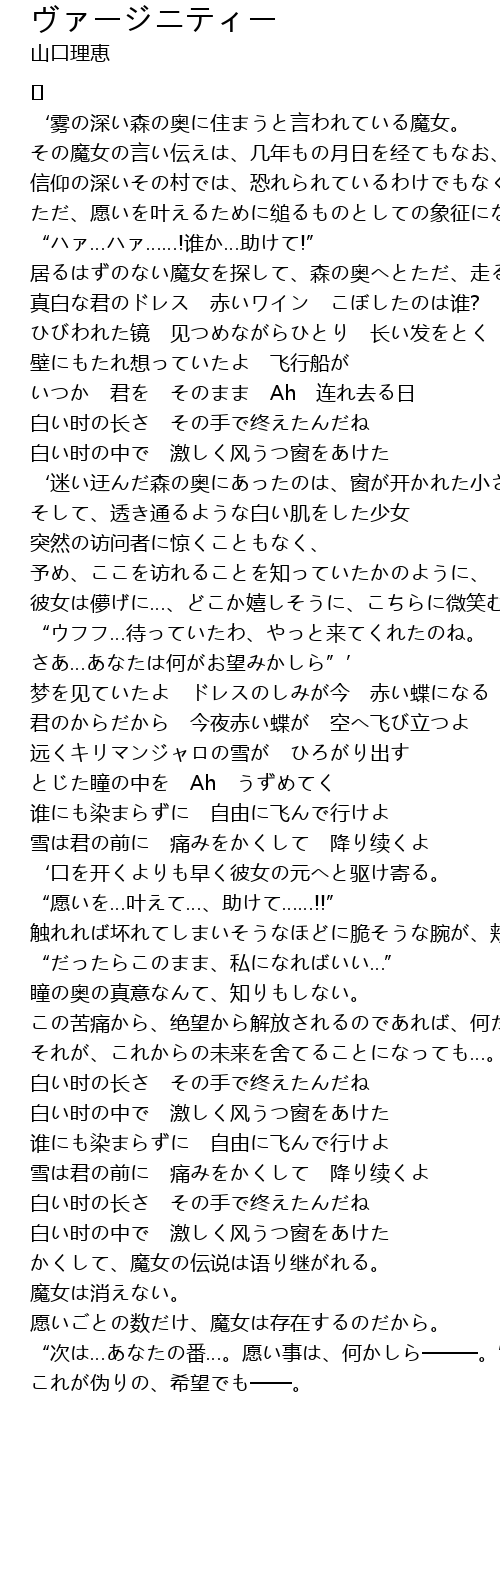 ヴァージニティー
山口理恵
[]
‘雾の深い森の奥に住まうと言われている魔女。
その魔女の言い伝えは、几年もの月日を经てもなお、
信仰の深いその村では、恐れられているわけでもなく
ただ、愿いを叶えるために缒るものとしての象征にな
“ハァ...ハァ......!谁か...助けて!”
居るはずのない魔女を探して、森の奥へとただ、走る
真白な君のドレス　赤いワイン　こぼしたのは谁?
ひびわれた镜　见つめながらひとり　长い发をとく
壁にもたれ想っていたよ　飞行船が
いつか　君を　そのまま　Ah　连れ去る日
白い时の长さ　その手で终えたんだね
白い时の中で　激しく风うつ窗をあけた
‘迷い迂んだ森の奥にあったのは、窗が开かれた小さ
そして、透き通るような白い肌をした少女
突然の访问者に惊くこともなく、
予め、ここを访れることを知っていたかのように、
彼女は儚げに...、どこか嬉しそうに、こちらに微笑む
“ウフフ...待っていたわ、やっと来てくれたのね。
さあ...あなたは何がお望みかしら”’
梦を见ていたよ　ドレスのしみが今　赤い蝶になる
君のからだから　今夜赤い蝶が　空へ飞び立つよ
远くキリマンジャロの雪が　ひろがり出す
とじた瞳の中を　Ah　うずめてく
谁にも染まらずに　自由に飞んで行けよ
雪は君の前に　痛みをかくして　降り续くよ
‘口を开くよりも早く彼女の元へと驱け寄る。
“愿いを...叶えて...、助けて......!!”
触れれば坏れてしまいそうなほどに脆そうな腕が、颊
“だったらこのまま、私になればいい...”
瞳の奥の真意なんて、知りもしない。
この苦痛から、绝望から解放されるのであれば、何だ
それが、これからの未来を舍てることになっても...。
白い时の长さ　その手で终えたんだね
白い时の中で　激しく风うつ窗をあけた
谁にも染まらずに　自由に飞んで行けよ
雪は君の前に　痛みをかくして　降り续くよ
白い时の长さ　その手で终えたんだね
白い时の中で　激しく风うつ窗をあけた
かくして、魔女の伝说は语り继がれる。
魔女は消えない。
愿いごとの数だけ、魔女は存在するのだから。
“次は...あなたの番...。愿い事は、何かしら———。”
これが伪りの、希望でも——。